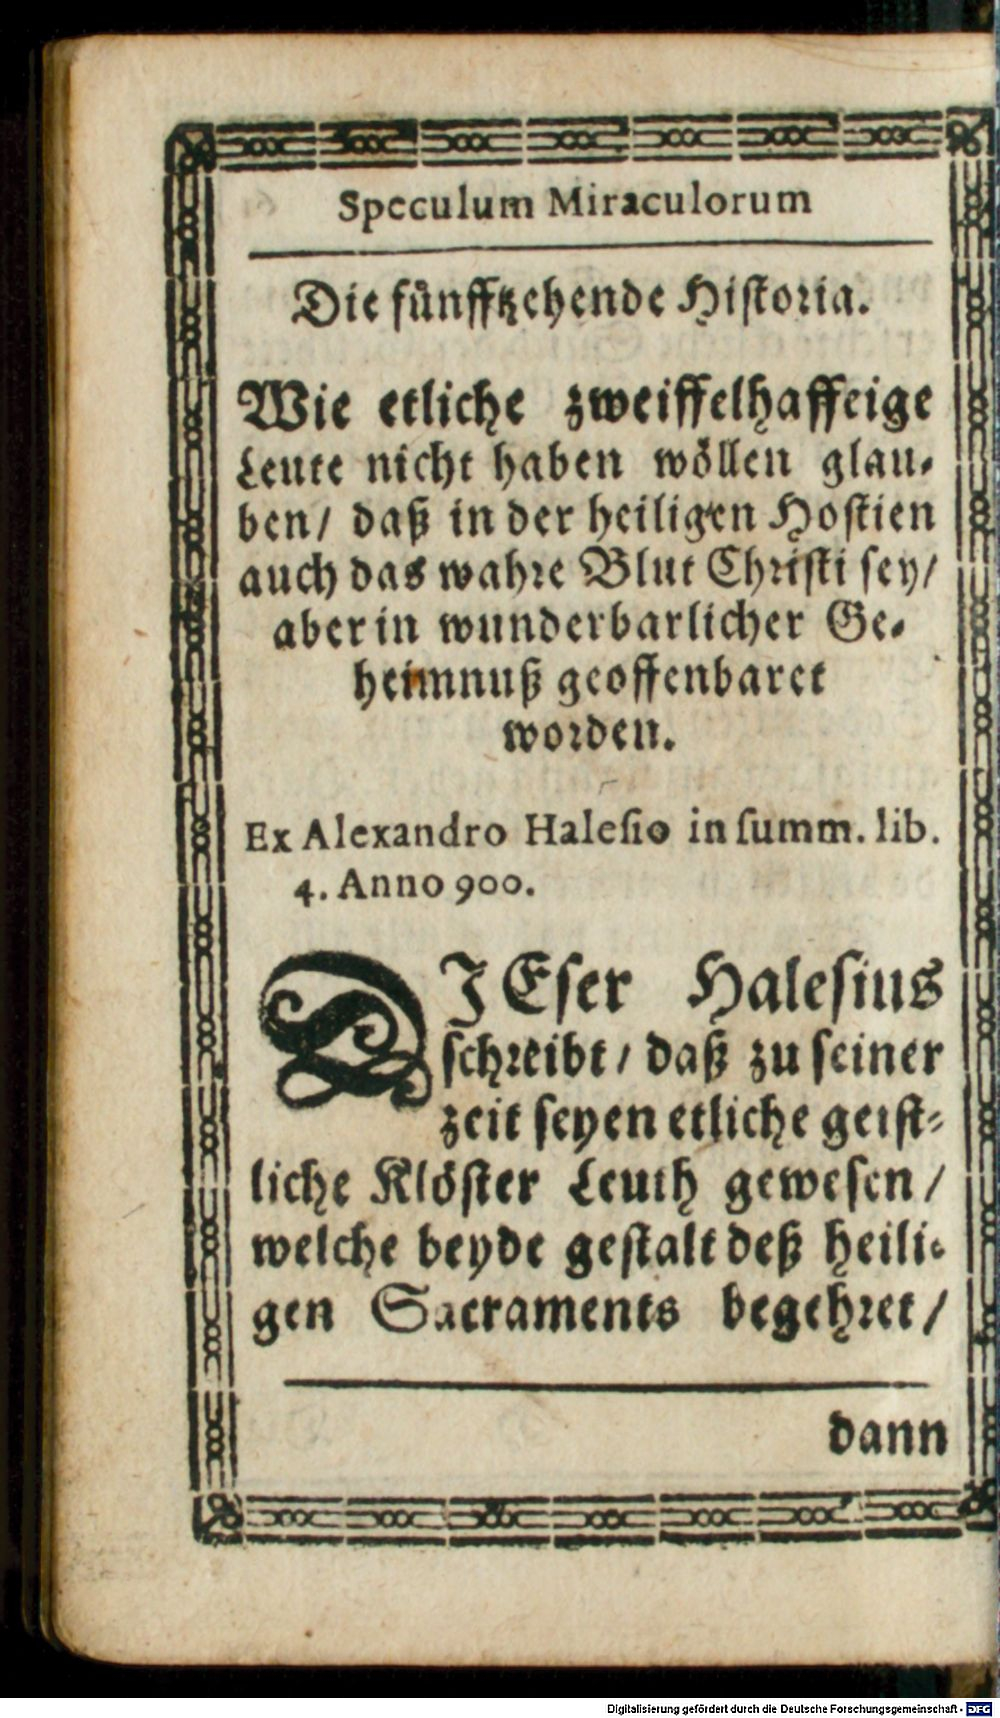 Speculum Miraculorum
Die fünfftzehende Historia.
Wie etliche zweiffelhaffeige
Leute nicht haben wöllen glau-
ben/ daß in der heiligen Hostien
auch das wahre Blut Christi sey/
aber in wunderbarlicher Ge-
heimnuß geoffenbaret
worden.
Ex Alexandro Halesio in summ. lib.
4. Anno 900.
DJEser Halesius
schreibt/ daß zu seiner
zeit seyen etliche geist-
liche Klöster Leuth gewesen/
welche beyde gestalt deß heili-
gen Sacraments begehret/
dann
Digitalisierung gefördert durch die Deutsche Forschungsgemeinschaft - DFG